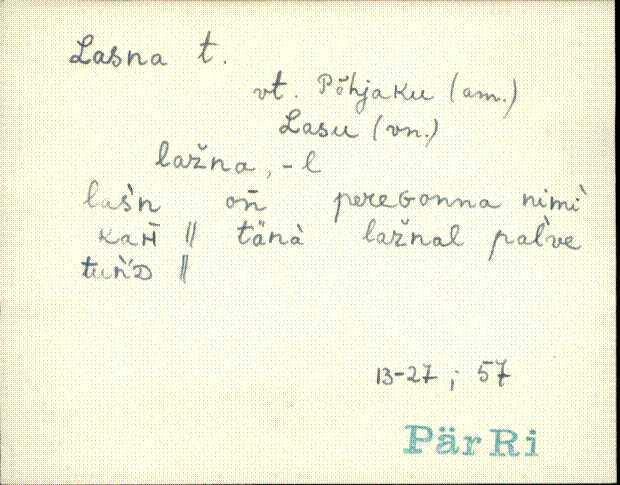 Lasna t.
vt. Põhjaku (am.)
Lasu (vn.)
lažna, -l
las̀n on̄ pereGonna nimì
kaH̄ || tänà lažnal pal̀ve
tuǹ'D ||
13-27; 57
PärRi